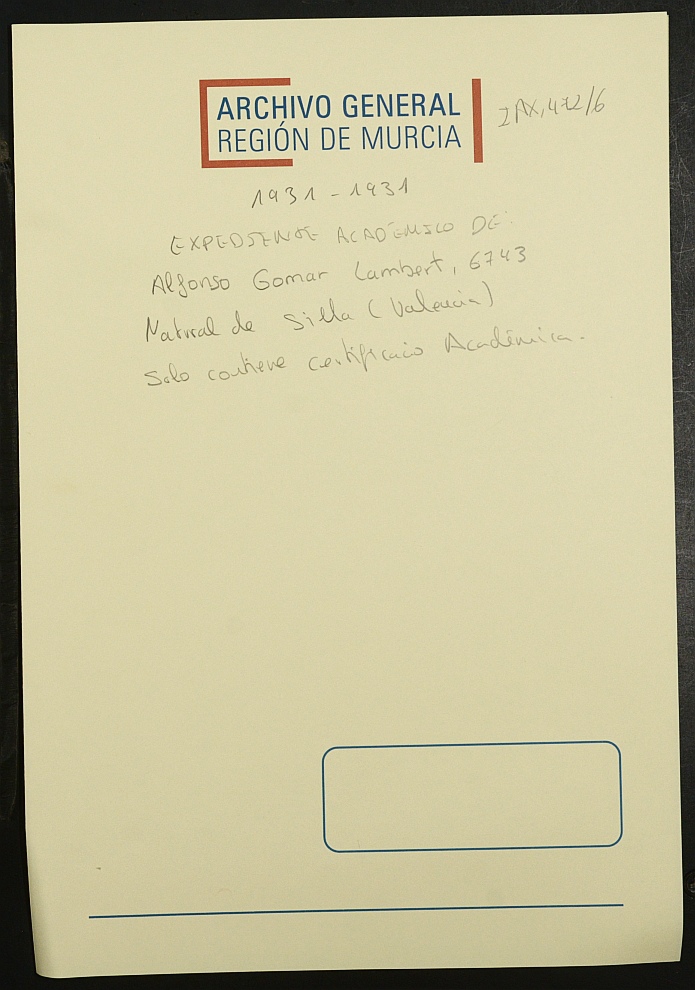 ARCHIVO GENERAL
REGIÓN DE MURCIA
IAX,472/6
1931 - 1931
EXPEDIENTE ACADÉMICO DE:
Alfonso Gomar Lambert, 6743
Natural de Silla (Valencia)
Solo contiene certificacio Académica.